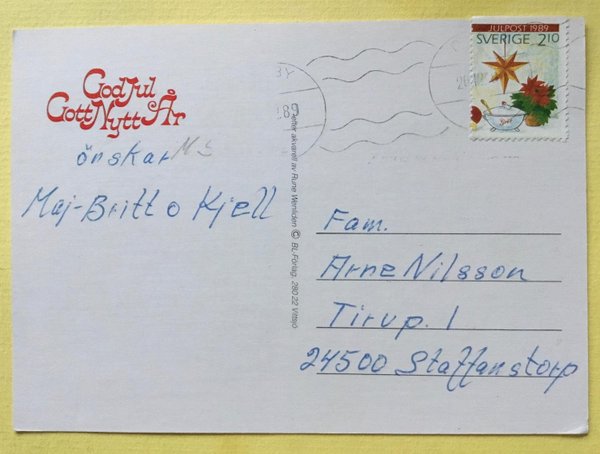 God Jul
Gott Nytt År
önskar
Maj-Britt o Kjell
JULPOST 1989
SVERIGE 2,10
Efter akvarell av Rune Wenliden © BL-Förlag, 280 22 Vittsjö
Fam.
Arne Nilsson
Tirup. 1
24500 Staffanstorp